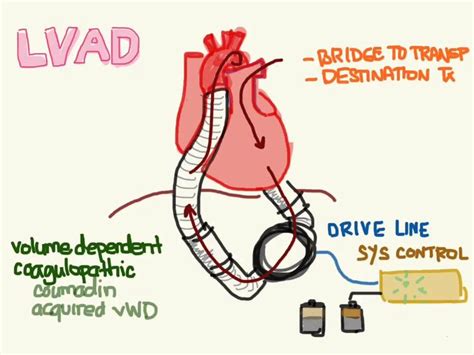 LVAD
- BRIDGE TO TRANSP
- DESTINATION Tx
DRIVE LINE
SYS CONTROL
volume dependent
coagulopathic
coumadin
acquired vWD